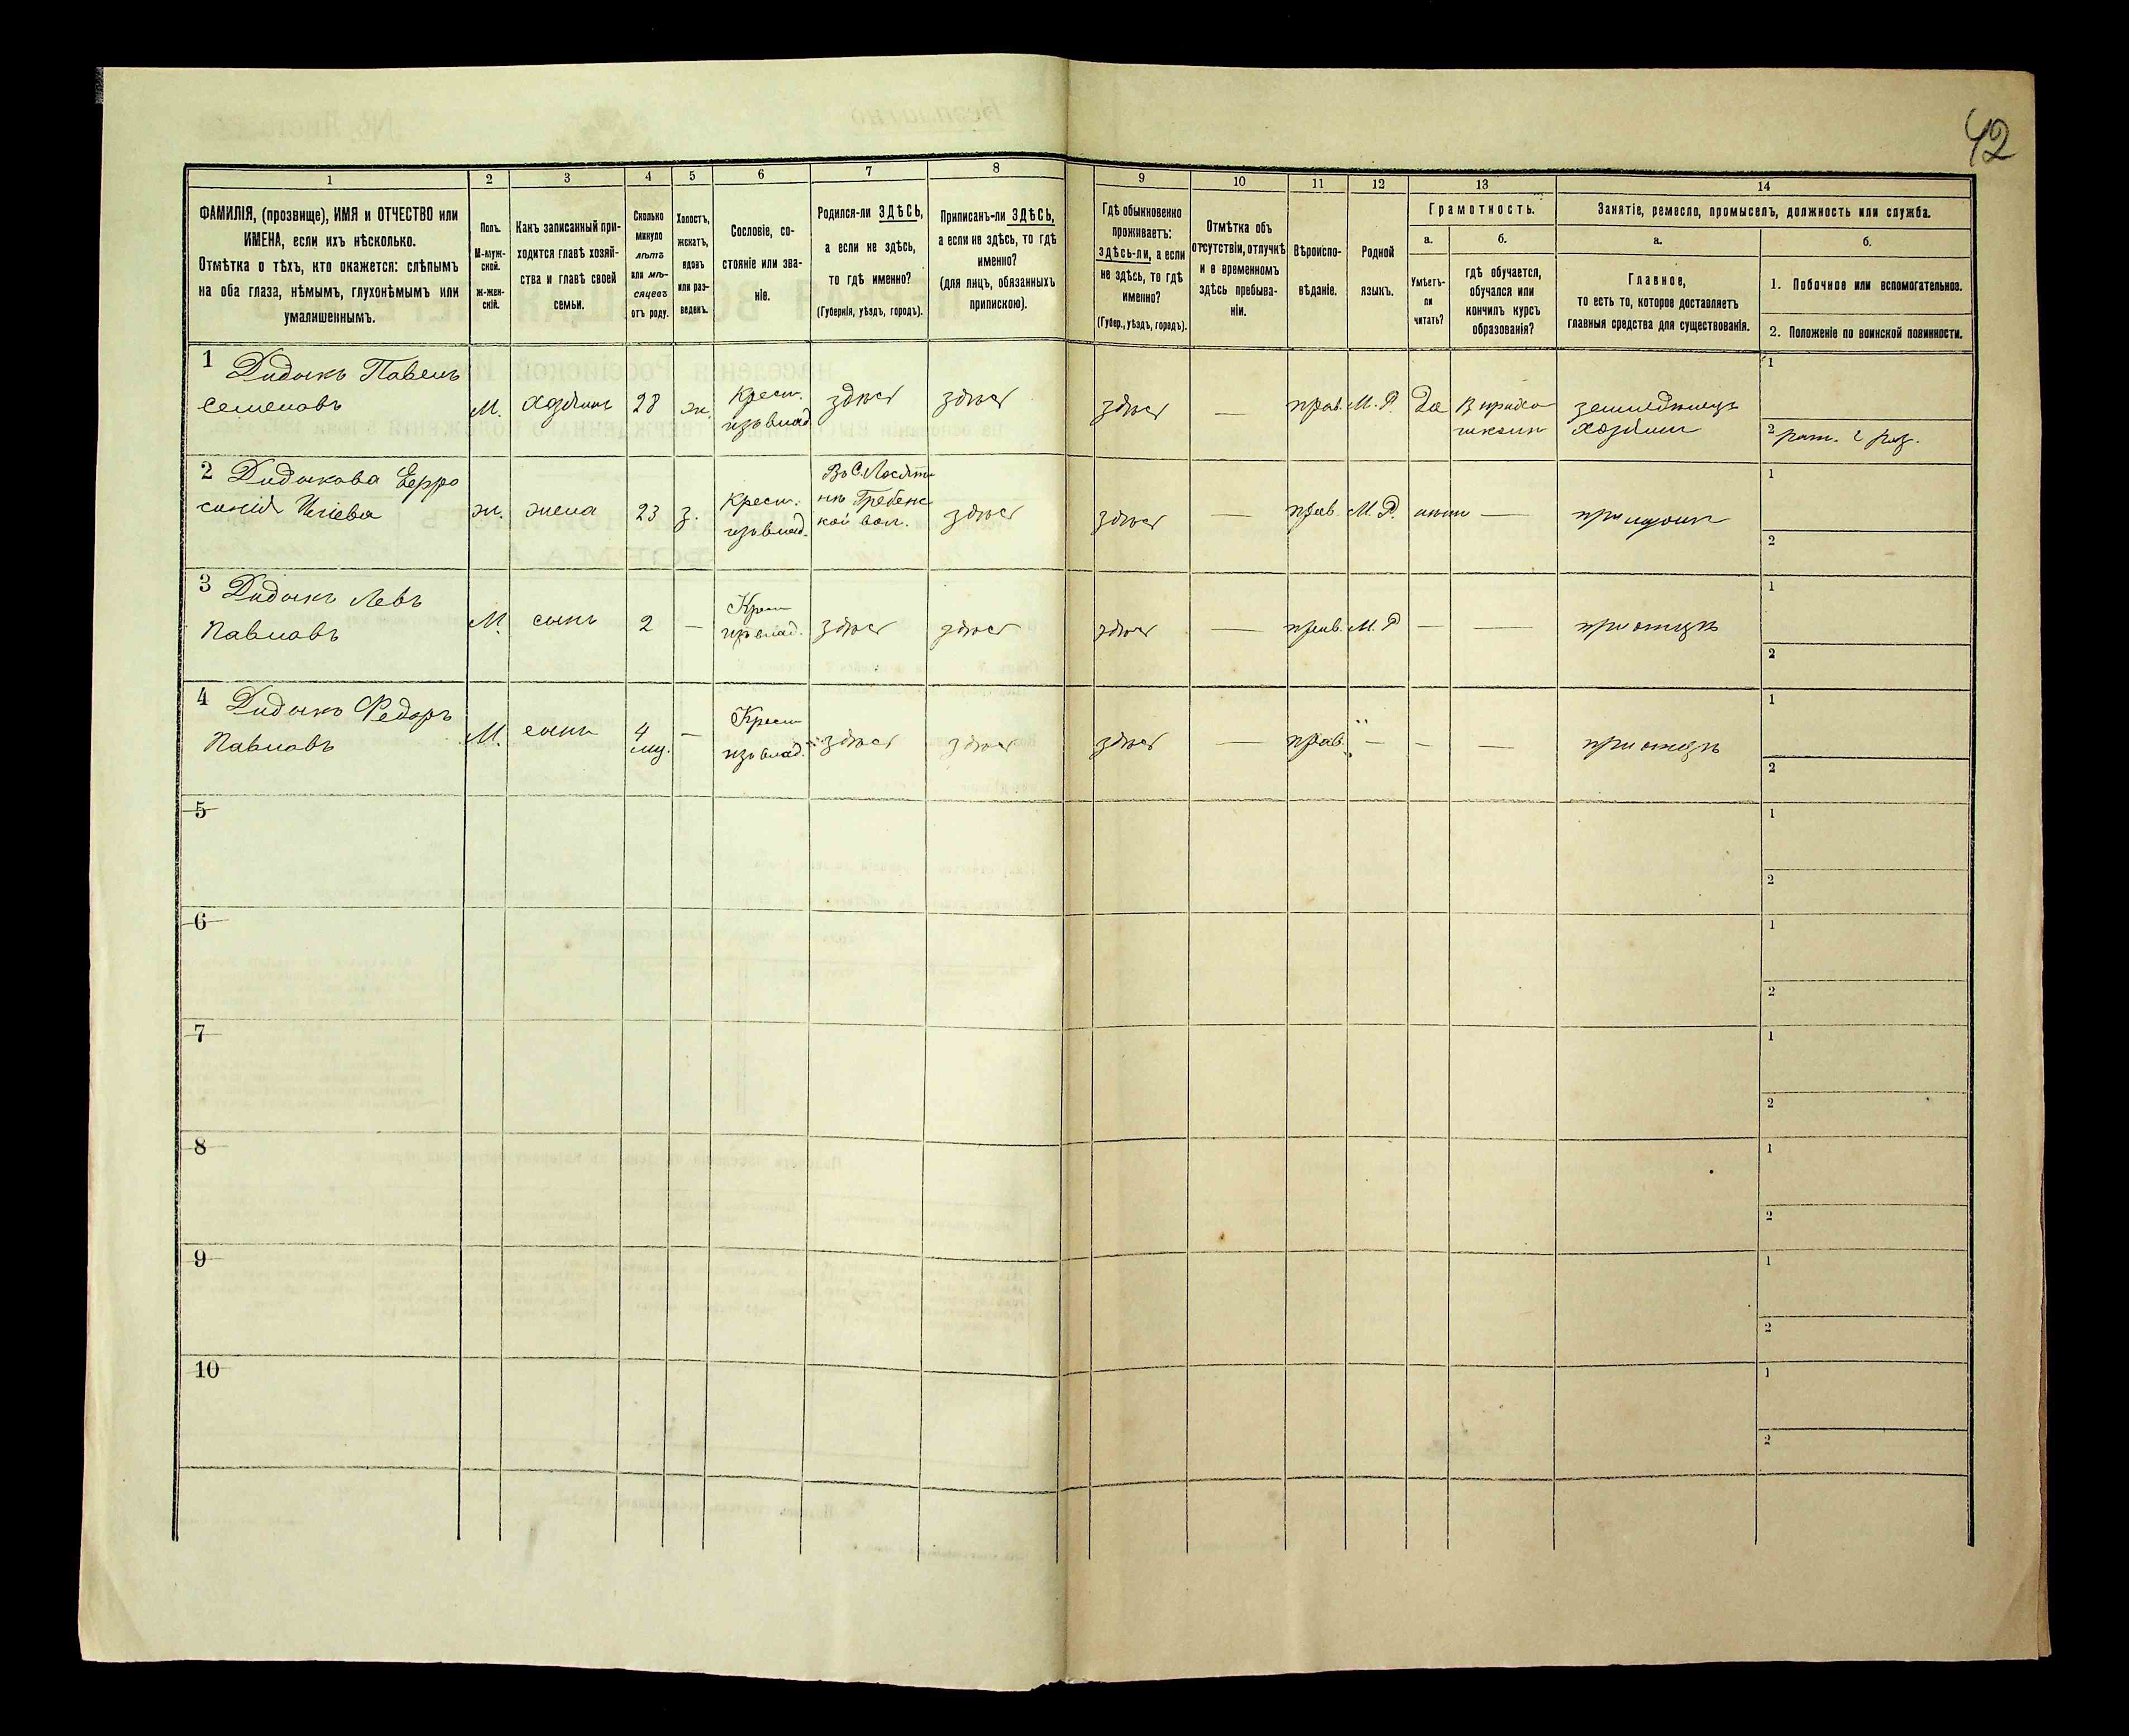 42
1
2
3
4
5
6
7
8
9
10
11
12
13
14
ФАМИЛІЯ, (прозвище), ИМЯ и ОТЧЕСТВО или
ИМЕНА, если ихъ нѣсколько.
Отмѣтка о тѣхъ, кто окажется: слѣпымъ
на оба глаза, нѣмымъ, глухонѣмымъ или
умалишеннымъ.
Полъ.
М-муж-
ской.
ж-жен-
скій.
Какъ записанный при-
ходится главѣ хозяй-
ства и главѣ своей
семьи.
Сколько
минуло
лѣтъ
или мѣ-
сяцевъ
отъ роду.
Холостъ,
женатъ,
вдовъ
или раз-
веденъ.
Сословіе, со-
стояніе или зва-
ніе.
Родился-ли ЗДѢСЬ,
а если не здѣсь,
то гдѣ именно?
(Губернія, уѣздъ, городъ).
Приписанъ-ли ЗДѢСЬ,
а если не здѣсь, то гдѣ
именно?
(для лицъ, обязанныхъ
припискою).
Гдѣ обыкновенно
проживаетъ:
здѣсь-ли, а если
не здѣсь, то гдѣ
именно?
(Губер., уѣздъ, городъ).
Отмѣтка объ
отсутствіи, отлучкѣ
и о временномъ
здѣсь пребыва-
ніи.
Вѣроиспо-
вѣданіе.
Родной
языкъ.
Грамотность.
а.
Умѣетъ-
ли
читать?
б.
гдѣ обучается,
обучался или
кончилъ курсъ
образованія?
Занятіе, ремесло, промыселъ, должность или служба.
а.
Главное,
то есть то, которое доставляетъ
главныя средства для существованія.
б.
1. Побочное или вспомогательное.
2. Положеніе по воинской повинности.
1 Дидыкъ Павелъ
Семеновъ
М.
хозяинъ
28
ж.
Крест.
изъ влад.
здѣсь
здѣсь
здѣсь
—
прав.
М. Р.
Да
земледѣлецъ
хозяинъ
1
2 рат. 2 раз.
2 Дидыкова Евро
синія
ж.
жена
23
з.
Крест.
изъ влад.
Гребенс
кой вол.
здѣсь
здѣсь
—
прав.
М. Р.
—
при мужѣ
1
2
3 Дидыкъ Левъ
Павловъ
М.
сынъ
2
—
Крест
изъ влад.
здѣсь
здѣсь
здѣсь
—
прав.
М. Р
—
—
при отцѣ
1
2
4 Дидыкъ Федоръ
Павловъ
М.
сынъ
4
мц.
—
Крест
изъ влад.
здѣсь
здѣсь
здѣсь
—
прав.
—
—
—
при отцѣ
1
2
5
1
2
6
1
2
7
1
2
8
1
2
9
1
2
10
1
2